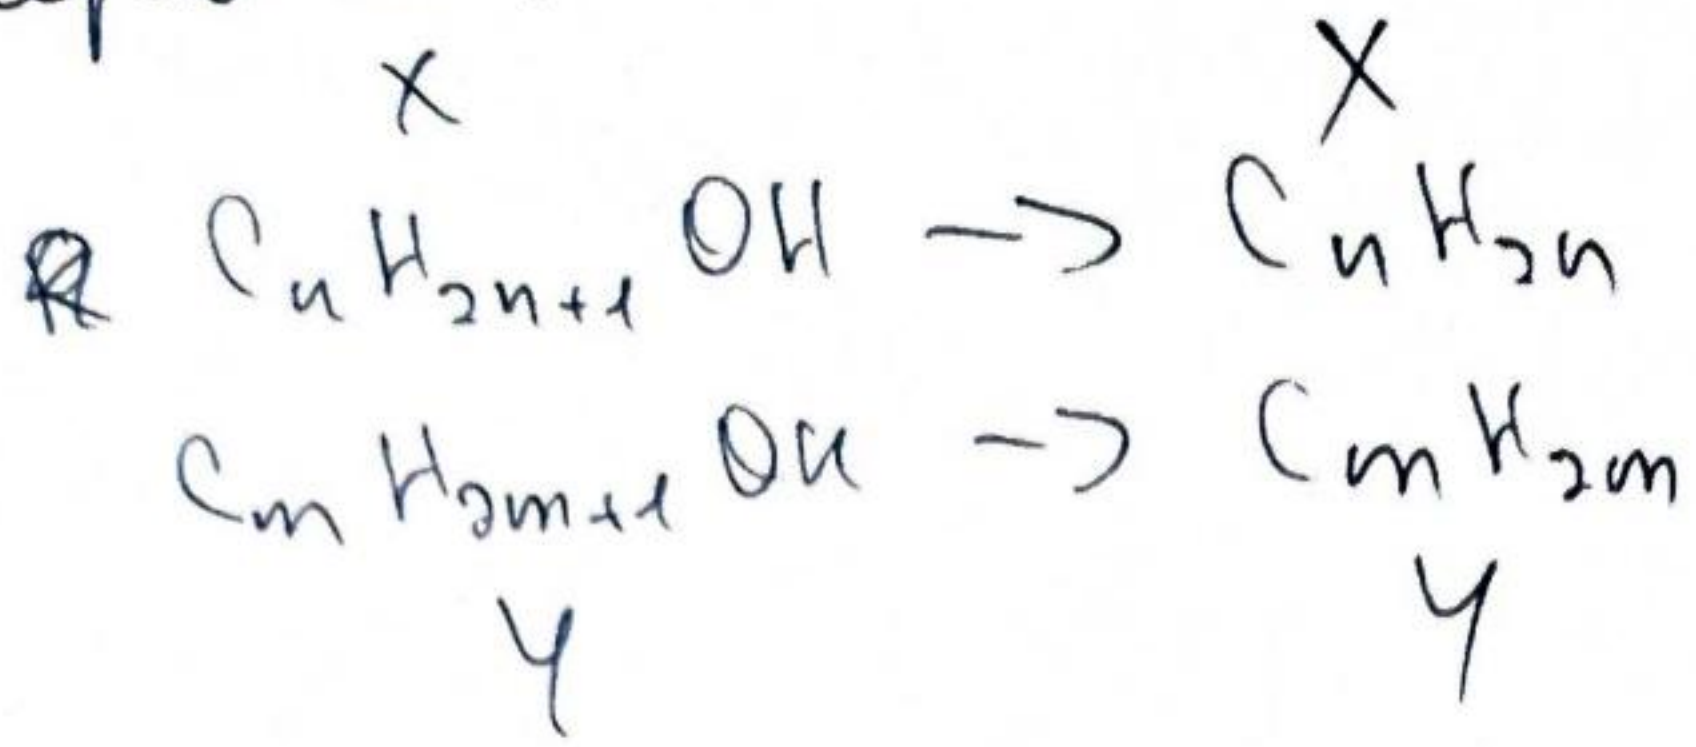 X X
CnH2n+1OH -> CnH2n
CmH2m+1OH -> CmH2m
Y Y